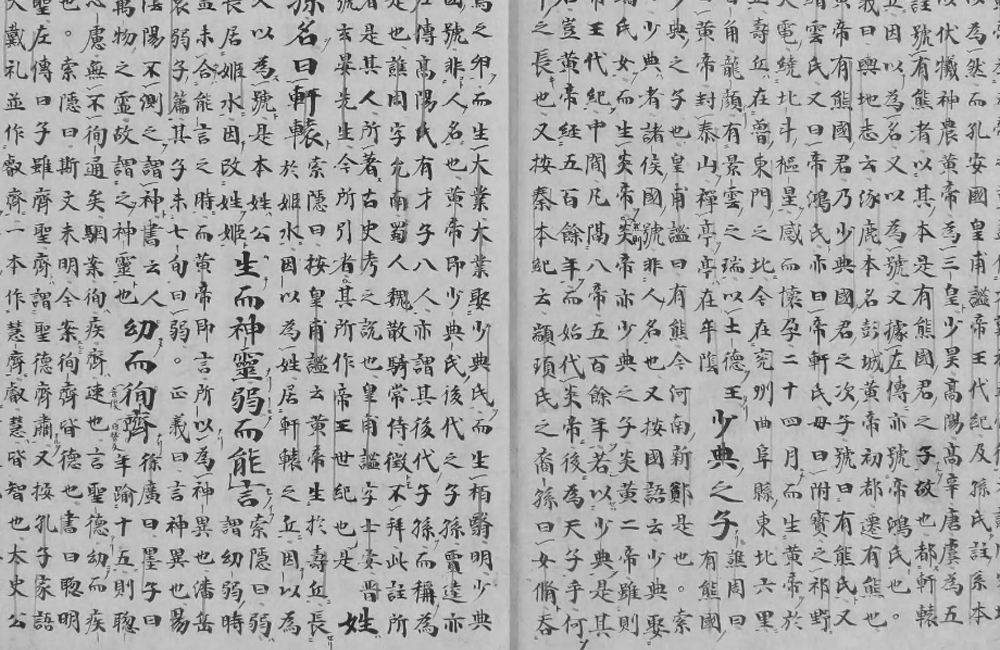 為然而孔安國皇甫謐帝王代紀及孫氏註系本
伏犧神農黃帝為三皇少昊高陽高辛唐虞為五
註號有熊者以其本是有熊國君之子故也都軒轅
因以為名又以為號又據左傳亦號帝鴻氏也。
義曰輿地志云涿鹿本名彭城黃帝初都遷有熊也
黃帝有熊國君乃少典國君之次子號曰有熊氏又
縉雲氏又曰帝鴻氏亦曰帝軒氏母曰附寶之祁野
大電繞北斗樞星感而懷孕二十四月而生黃帝於
壽丘在魯東門之北今在兗州曲阜縣東北六里
角龍顏有景雲之瑞以土德王
黃帝封泰山禪亭亭在牟陰
少典之子
譙周曰
有熊國
少典之子也皇甫謐曰有熊今河南新鄭是也。索
少典者諸侯國號非人名也又按國語云少典娶
氏女而生炎帝炎帝亦少典之子炎黃二帝雖則
帝王代紀中間凡隔八帝五百餘年若以少典是其
名豈黃帝經五百餘年而始代炎帝後為天子乎何
之長也又按秦本紀云顓頊氏之裔孫曰女脩吞
鳥之卵而生大業大業娶少典氏而生柏翳明少典
國號非人名也黃帝即少典氏後代之子孫賈逵亦
左傳高陽氏有才子八人亦謂其後代子孫而稱為
是也譙周字允南蜀人魏散騎常侍徵不拜此註所
者是其人所著古史考之說也皇甫謐字士安晉
號玄晏先生今所引者其所作帝王世紀也是
姓
孫名曰軒轅
索隱曰按皇甫謐云黃帝生於壽丘長
於姬水因以為姓居軒轅之丘因以為
又以為號是本姓公
長居姬水因改姓姬
生而神靈弱而能言
索隱曰弱
謂幼弱時
蓋未合能言之時而黃帝即言所以為神異也潘岳
哀弱子篇其子未七旬曰弱。正義曰言神異也易
陰陽不測之謂神書云人
萬物之靈故謂之神靈也
幼而徇齊
徐廣曰墨子曰
年踰十五則聰
心慮無不徇通矣駰案徇疾齊速也言聖德幼而疾
也。索隱曰斯文未明今案徇齊皆德也書曰聰明
聖左傳曰子雖齊聖齊謂聖德齊肅又按孔子家語
大戴礼並作叡齊一本作慧齊叡慧皆智也太史公